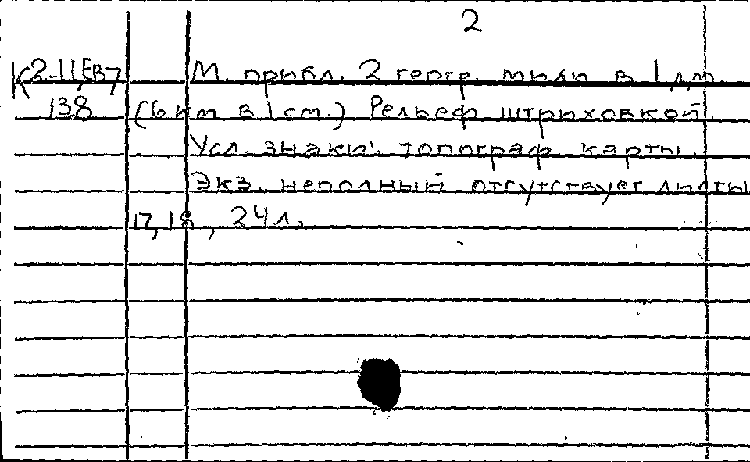 2
К2-11ЕВ7 М. прибл. 2 геогр. мили в 1 дм.
138 (6 км в 1 см.) Рельеф штриховкой
Усл. знаки: топограф. карты.
Экз. неполный отсутствует листы
17, 18, 24 л.